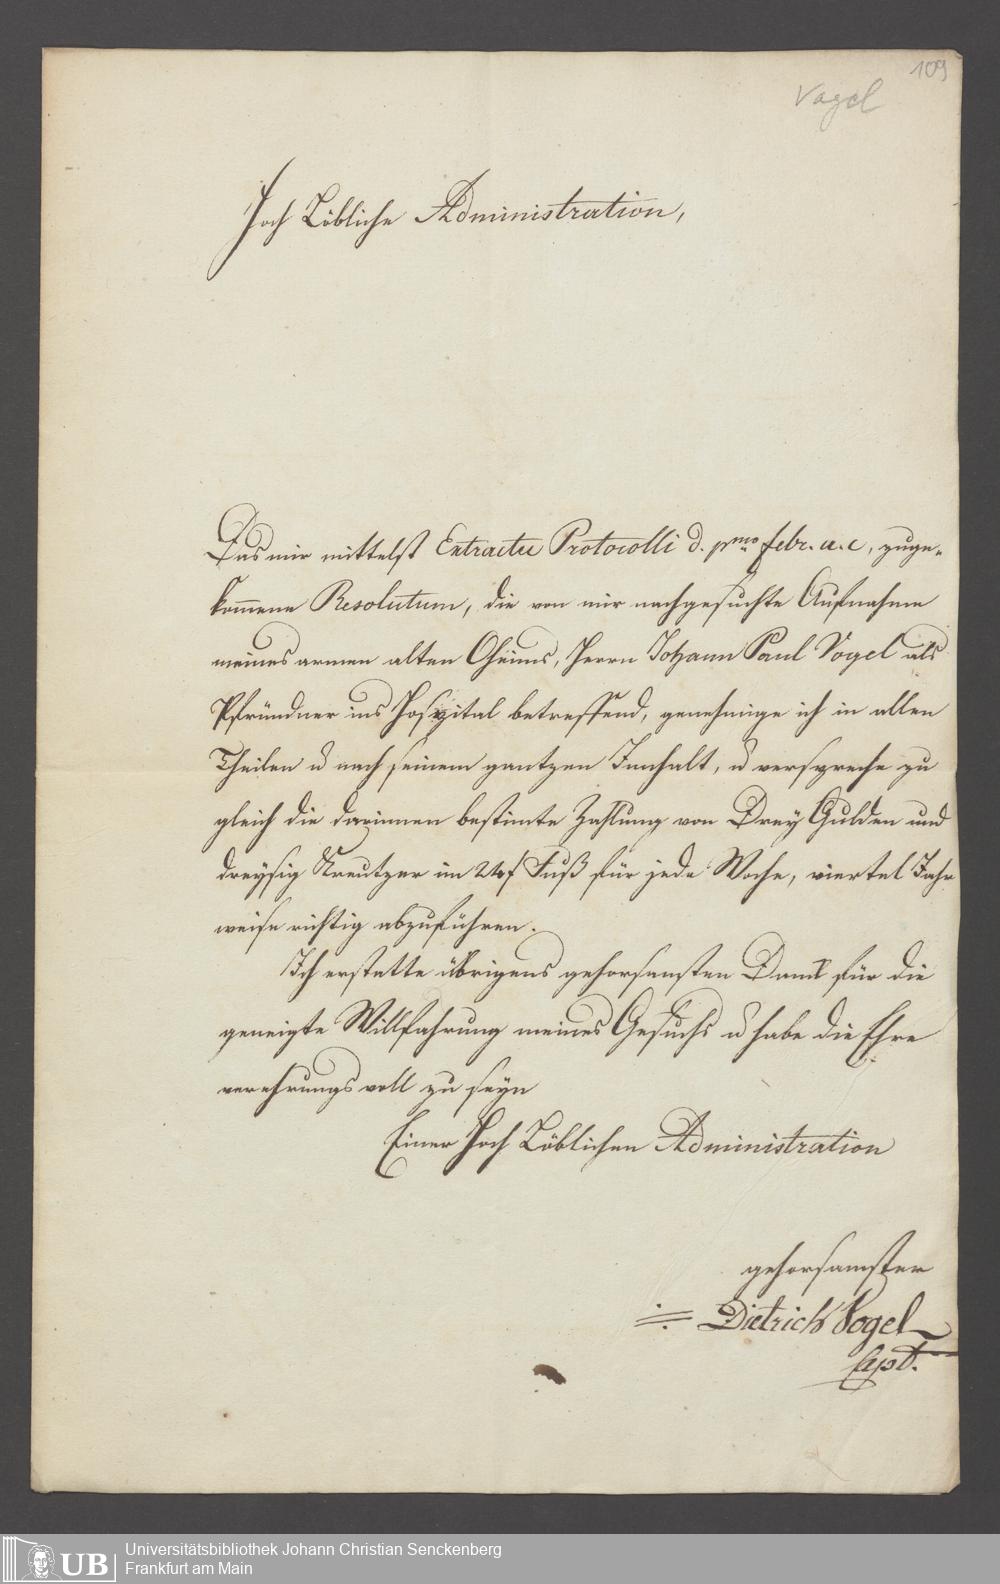 109
Vogel
Hoch Löbliche Administration,
Das mir mittelst Extractu Protocolli d. pmo febr. a. c, zuge-
kom̄ene Resolutum, die von mir nachgesuchte Aufnahme
meines armen alten Oheims, Herrn Johann Paul Vogel als
Pfründner ins Hospital betreffend, genehmige ich in allen
Theilen u nach seinem gantzen Innhalt, u verspreche zu
gleich die darinnen bestim̄te Zahlung von Drey Gulden und
dreysig Kreutzer im 24f Fuß für jede Woche, viertel Jahr
weise richtig abzuführen.
Ich erstatte übrigens gehorsamsten Dank für die
geneigte Willfahrung meines Gesuchs u habe die Ehre
verehrungsvoll zu seyn
Einer Hoch Löblichen Administration
gehorsamster
Dietrich Vogel
Capt.
UB
Universitätsbibliothek Johann Christian Senckenberg
Frankfurt am Main